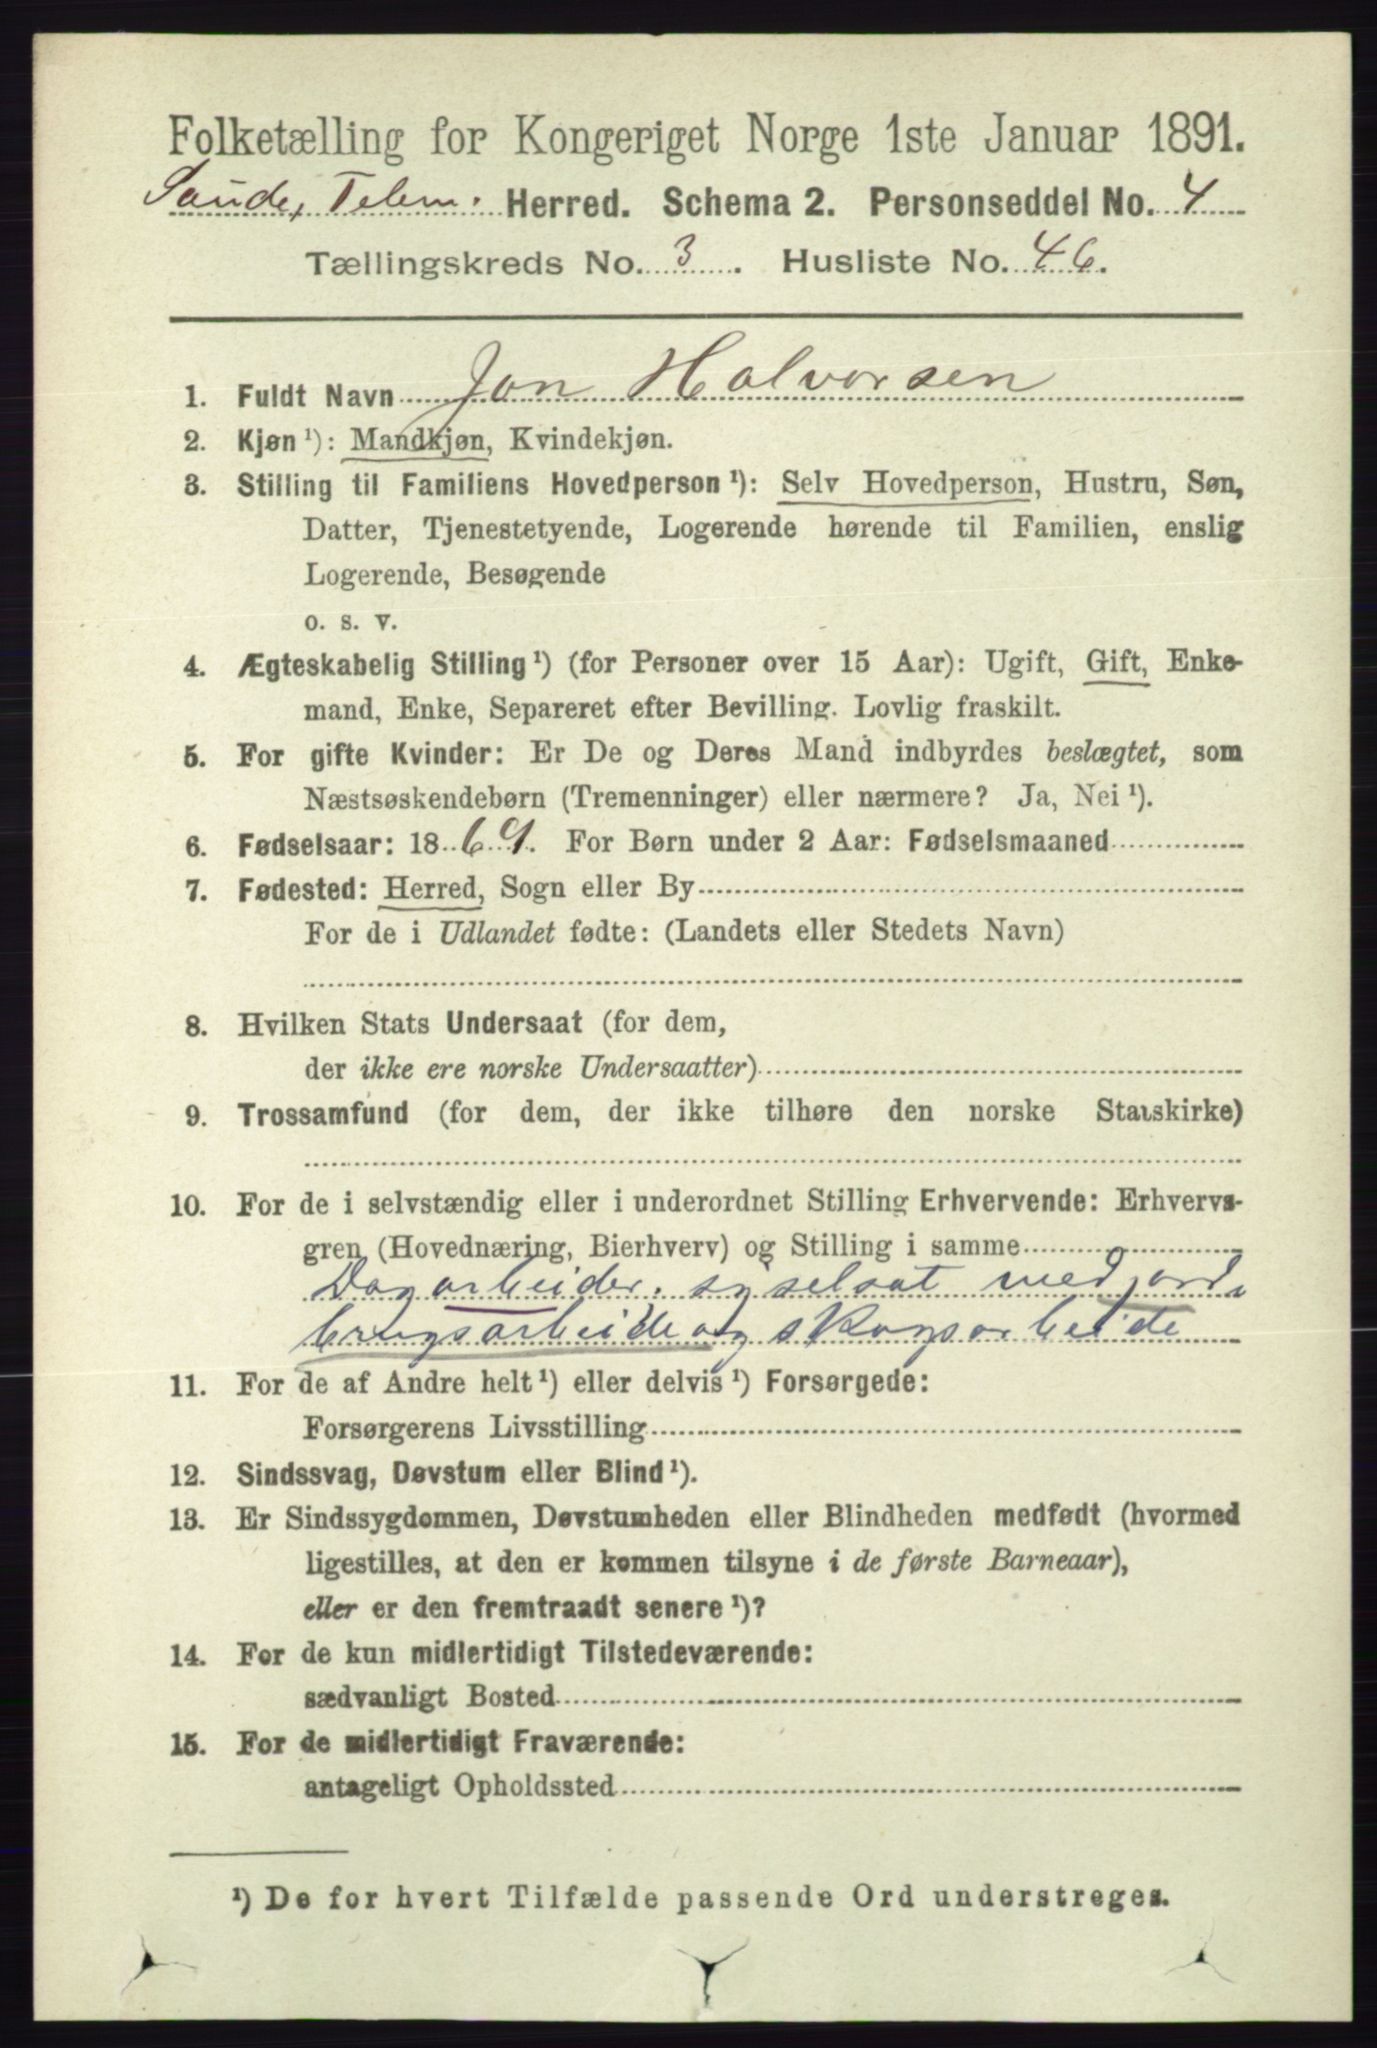 Folketælling for Kongeriget Norge 1ste Januar 1891.
Saude, Telem. Herred. Schema 2. Personseddel No. 4
Tællingskreds No. 3. Husliste No. 46.
1. Fuldt Navn Jon Halvorsen
2. Kjøn¹): Mandkjøn, Kvindekjøn.
3. Stilling til Familiens Hovedperson¹): Selv Hovedperson, Hustru, Søn,
Datter, Tjenestetyende, Logerende hørende til Familien, enslig
Logerende, Besøgende
o. s. v.
4. Ægteskabelig Stilling¹) (for Personer over 15 Aar): Ugift, Gift, Enke-
mand, Enke, Separeret efter Bevilling. Lovlig fraskilt.
5. For gifte Kvinder: Er De og Deres Mand indbyrdes beslægtet, som
Næstsøskendebørn (Tremenninger) eller nærmere? Ja, Nei¹).
6. Fødselsaar: 1869. For Børn under 2 Aar: Fødselsmaaned
7. Fødested: Herred, Sogn eller By
For de i Udlandet fødte: (Landets eller Stedets Navn)
8. Hvilken Stats Undersaat (for dem,
der ikke ere norske Undersaatter)
9. Trossamfund (for dem, der ikke tilhøre den norske Statskirke)
10. For de i selvstændig eller i underordnet Stilling Erhvervende: Erhvervs-
gren (Hovednæring, Bierhverv) og Stilling i samme
Dagarbeider. syselsat med jord
brugsarbeide og skogsarbeide
11. For de af Andre helt¹) eller delvis¹) Forsørgede:
Forsørgerens Livsstilling
12. Sindssvag, Døvstum eller Blind¹).
13. Er Sindssygdommen, Døvstumheden eller Blindheden medfødt (hvormed
ligestilles, at den er kommen tilsyne i de første Barneaar),
eller er den fremtraadt senere¹)?
14. For de kun midlertidigt Tilstedeværende:
sædvanligt Bosted
15. For de midlertidigt Fraværende:
antageligt Opholdssted
¹) De for hvert Tilfælde passende Ord understreges.